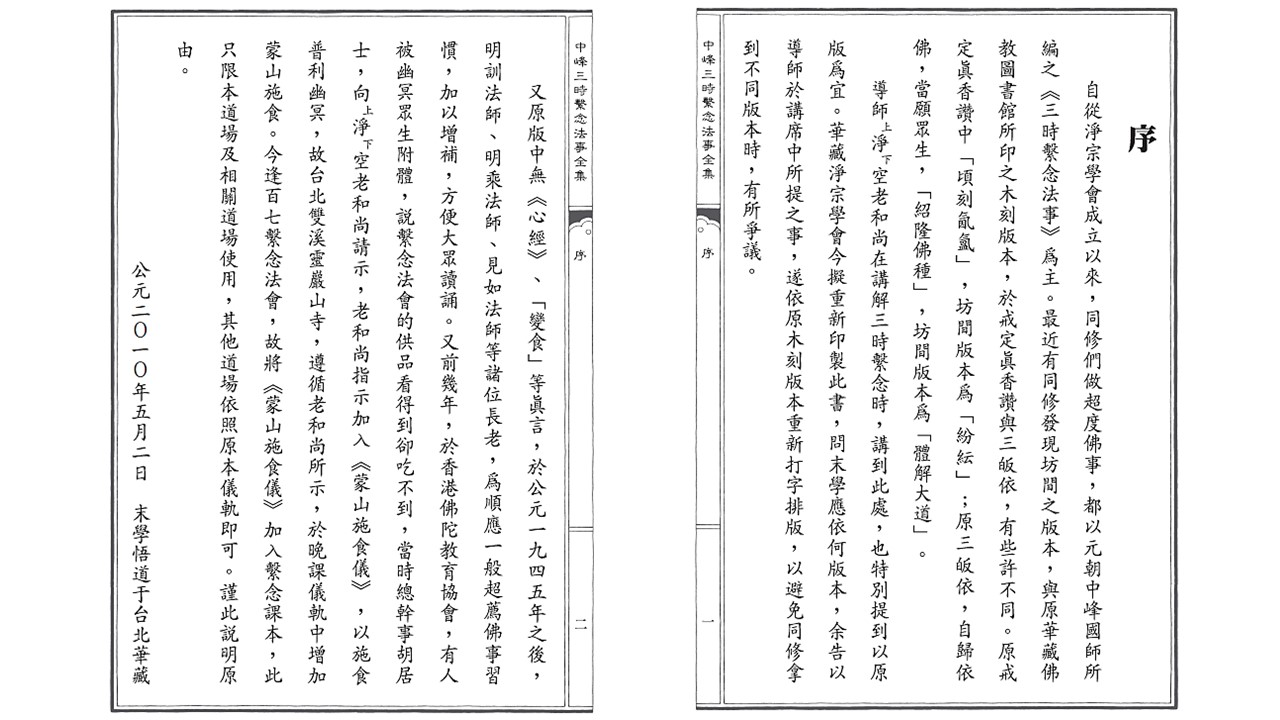 序
自從淨宗學會成立以來，同修們做超度佛事，都以元朝中峰國師所
編之《三時繫念法事》為主。最近有同修發現坊間之版本，與原華藏佛
教圖書館所印之木刻版本，於戒定眞香讚與三皈依，有些許不同。原戒
定眞香讚中「頃刻氤氳」，坊間版本為「紛紜」；原三皈依，自歸依
佛，當願眾生，「紹隆佛種」，坊間版本為「體解大道」。
導師上淨下空老和尚在講解三時繫念時，講到此處，也特別提到以原
版為宜。華藏淨宗學會今擬重新印製此書，問末學應依何版本，余告以
導師於講席中所提之事，遂依原木刻版本重新打字排版，以避免同修拿
到不同版本時，有所爭議。
中峰三時繫念法事全集
序
一
中峰三時繫念法事全集
序
二
又原版中無《心經》、「變食」等眞言，於公元一九四五年之後，
明訓法師、明乘法師、見如法師等諸位長老，為順應一般超薦佛事習
慣，加以增補，方便大眾讀誦。又前幾年，於香港佛陀教育協會，有人
被幽冥眾生附體，說繫念法會的供品看得到卻吃不到，當時總幹事胡居
士，向上淨下空老和尚請示，老和尚指示加入《蒙山施食儀》，以施食
普利幽冥，故台北雙溪靈巖山寺，遵循老和尚所示，於晚課儀軌中增加
蒙山施食。今逢百七繫念法會，故將《蒙山施食儀》加入繫念課本，此
只限本道場及相關道場使用，其他道場依照原本儀軌即可。謹此說明原
由。
公元二〇一〇年五月二日　末學悟道于台北華藏